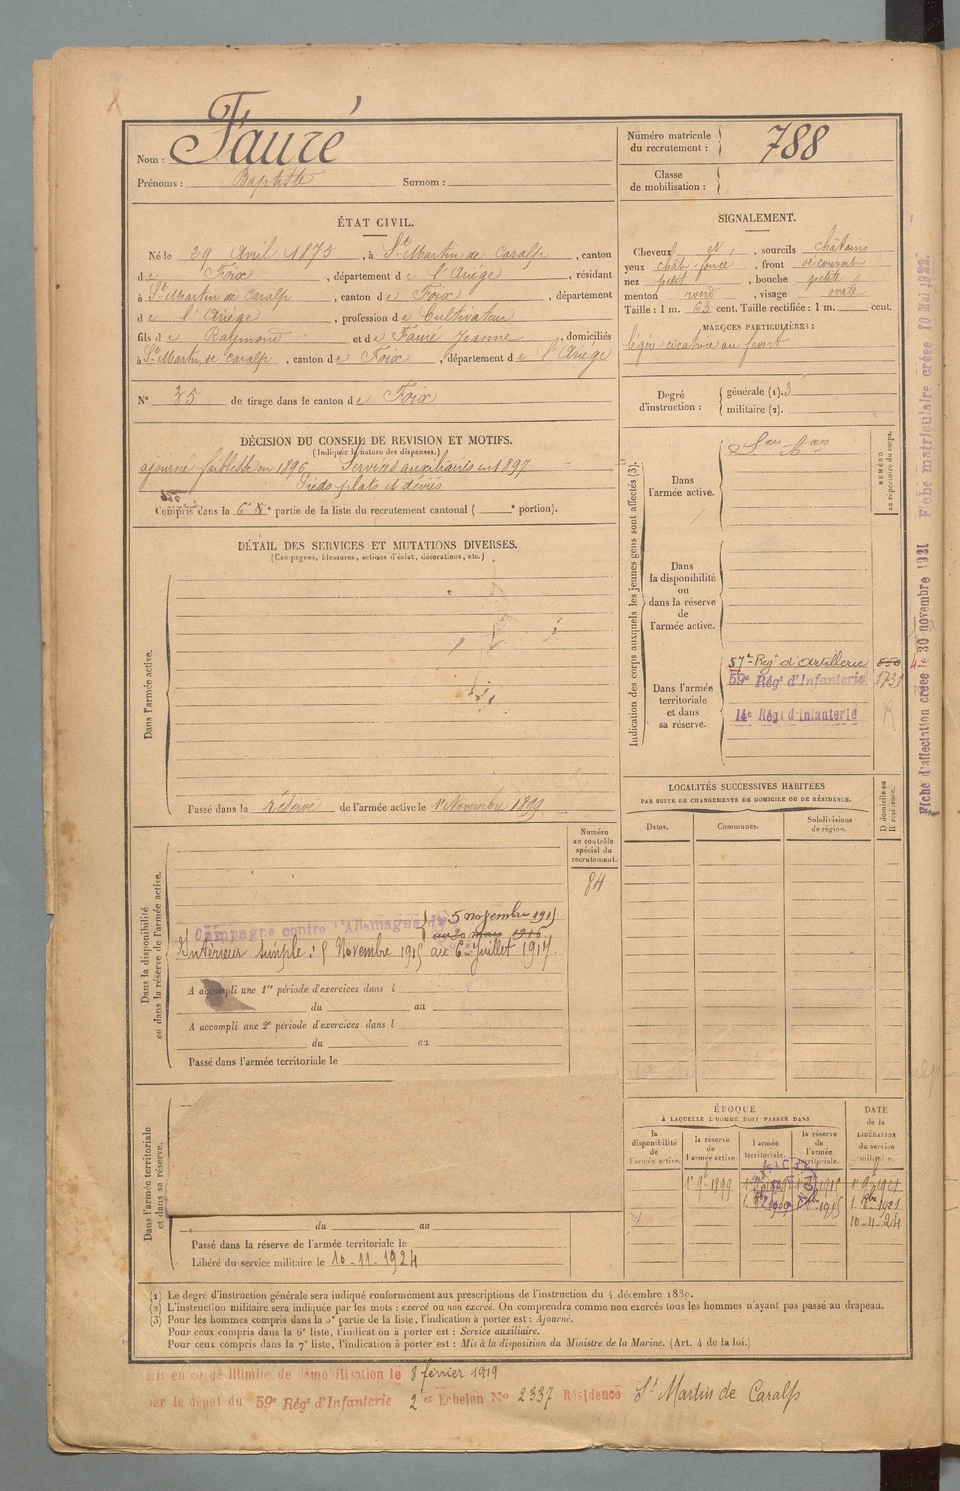 Fauré
Nom :
Prénoms : Baptiste Surnom :
Numéro matricule du recrutement : 788
Classe de mobilisation :
ÉTAT CIVIL.
Né le 29 Avril 1875, à St Martin de Caralp, canton
de Foix, département de l'Ariège, résidant
à St Martin de Caralp, canton de Foix, département
de l'Ariège, profession de Cultivateur
fils de Raymond et de Fauré Jeanne, domiciliés
à St Martin de Caralp, canton de Foix, département de l'Ariège
N° 35 de tirage dans le canton de Foix
SIGNALEMENT.
Cheveux et, sourcils châtains
yeux chât. foncé, front découvert
nez petit, bouche petite
menton rond, visage ovale
Taille : 1 m. 63 cent. Taille rectifiée : 1 m. cent.
MARQUES PARTICULIÈRES :
légère cicatrice au front
Degré d'instruction : générale (1). 3
militaire (2).
DÉCISION DU CONSEIL DE REVISION ET MOTIFS.
(Indiquer la nature des dispenses.)
ajourné faiblesse en 1896, Services auxiliaires en 1897
Pieds plats et déviés
Compris dans la 6e partie de la liste du recrutement cantonal ( e portion).
DÉTAIL DES SERVICES ET MUTATIONS DIVERSES.
(Campagnes, blessures, actions d'éclat, décorations, etc.)
Dans l'armée active.
Passé dans la réserve de l'armée active le 1er Novembre 1899
Indication des corps auxquels les jeunes gens sont affectés (3).
NUMÉRO au répertoire du corps.
Dans l'armée active.
Dans la disponibilité ou dans la réserve de l'armée active.
Dans l'armée territoriale et dans sa réserve.
57e Régt d'Artillerie
59e Régt d'Infanterie 1731
14e Régt d'Infanterie
Fiche d'affectation créée le 30 novembre 1921 Fiche matriculaire créée 10 Mai 1922.
LOCALITÉS SUCCESSIVES HABITÉES
PAR SUITE DE CHANGEMENTS DE DOMICILE OU DE RÉSIDENCE.
Dates. Communes. Subdivisions de région. D domicile ou R résidence.
Dans la disponibilité ou dans la réserve de l'armée active.
Numéro au contrôle spécial du recrutement.
84
Campagne contre l'Allemagne du 5 novembre 1915
au 20 mars 1916
Intérieur simple : 5 Novembre 1915 au 6 Juillet 1917.
A accompli une 1re période d'exercices dans l
du au
A accompli une 2e période d'exercices dans l
du au
Passé dans l'armée territoriale le
Dans l'armée territoriale et dans sa réserve.
du au
Passé dans la réserve de l'armée territoriale le
Libéré du service militaire le 10-11-1924
ÉPOQUE
À LAQUELLE L'HOMME DOIT PASSER DANS
la disponibilité de l'armée active.
la réserve de l'armée active.
l'armée territoriale.
la réserve de l'armée territoriale.
DATE de la LIBÉRATION du service militaire.
1er 9bre 1899
10-11-24
(1) Le degré d'instruction générale sera indiqué conformément aux prescriptions de l'instruction du 4 décembre 1889.
(2) L'instruction militaire sera indiquée par les mots : exercé ou non exercé. On comprendra comme non exercés tous les hommes n'ayant pas passé au drapeau.
(3) Pour les hommes compris dans la 5e partie de la liste, l'indication à porter est : Ajourné.
Pour ceux compris dans la 6e liste, l'indication à porter est : Service auxiliaire.
Pour ceux compris dans la 7e liste, l'indication à porter est : Mis à la disposition du Ministre de la Marine. (Art. 4 de la loi.)
Mis en congé illimité de démobilisation le 8 février 1919
par le dépôt du 59e Régt d'Infanterie 2e Echelon N° 2337 Résidence St Martin de Caralp